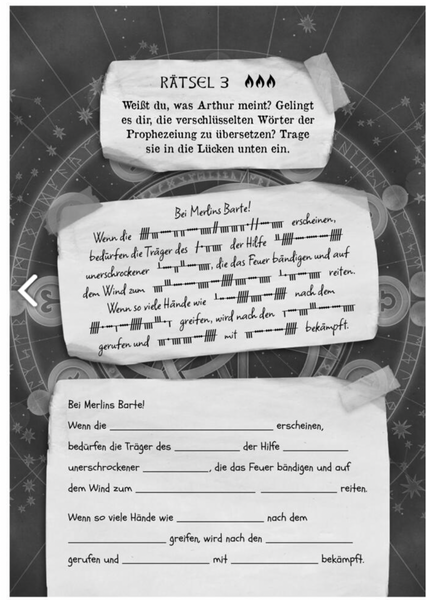 RÄTSEL 3
Weißt du, was Arthur meint? Gelingt
es dir, die verschlüsselten Wörter der
Prophezeiung zu übersetzen? Trage
sie in die Lücken unten ein.
Bei Merlins Barte!
Wenn die erscheinen,
bedürfen die Träger des der Hilfe
unerschrockener , die das Feuer bändigen und auf
dem Wind zum reiten.
Wenn so viele Hände wie nach dem
greifen, wird nach den
gerufen und mit bekämpft.
Bei Merlins Barte!
Wenn die ____________ erscheinen,
bedürfen die Träger des ____________ der Hilfe ____________
unerschrockener ____________, die das Feuer bändigen und auf
dem Wind zum ____________ ____________ reiten.
Wenn so viele Hände wie ____________ nach dem
____________ greifen, wird nach den ____________
gerufen und ____________ mit ____________ bekämpft.